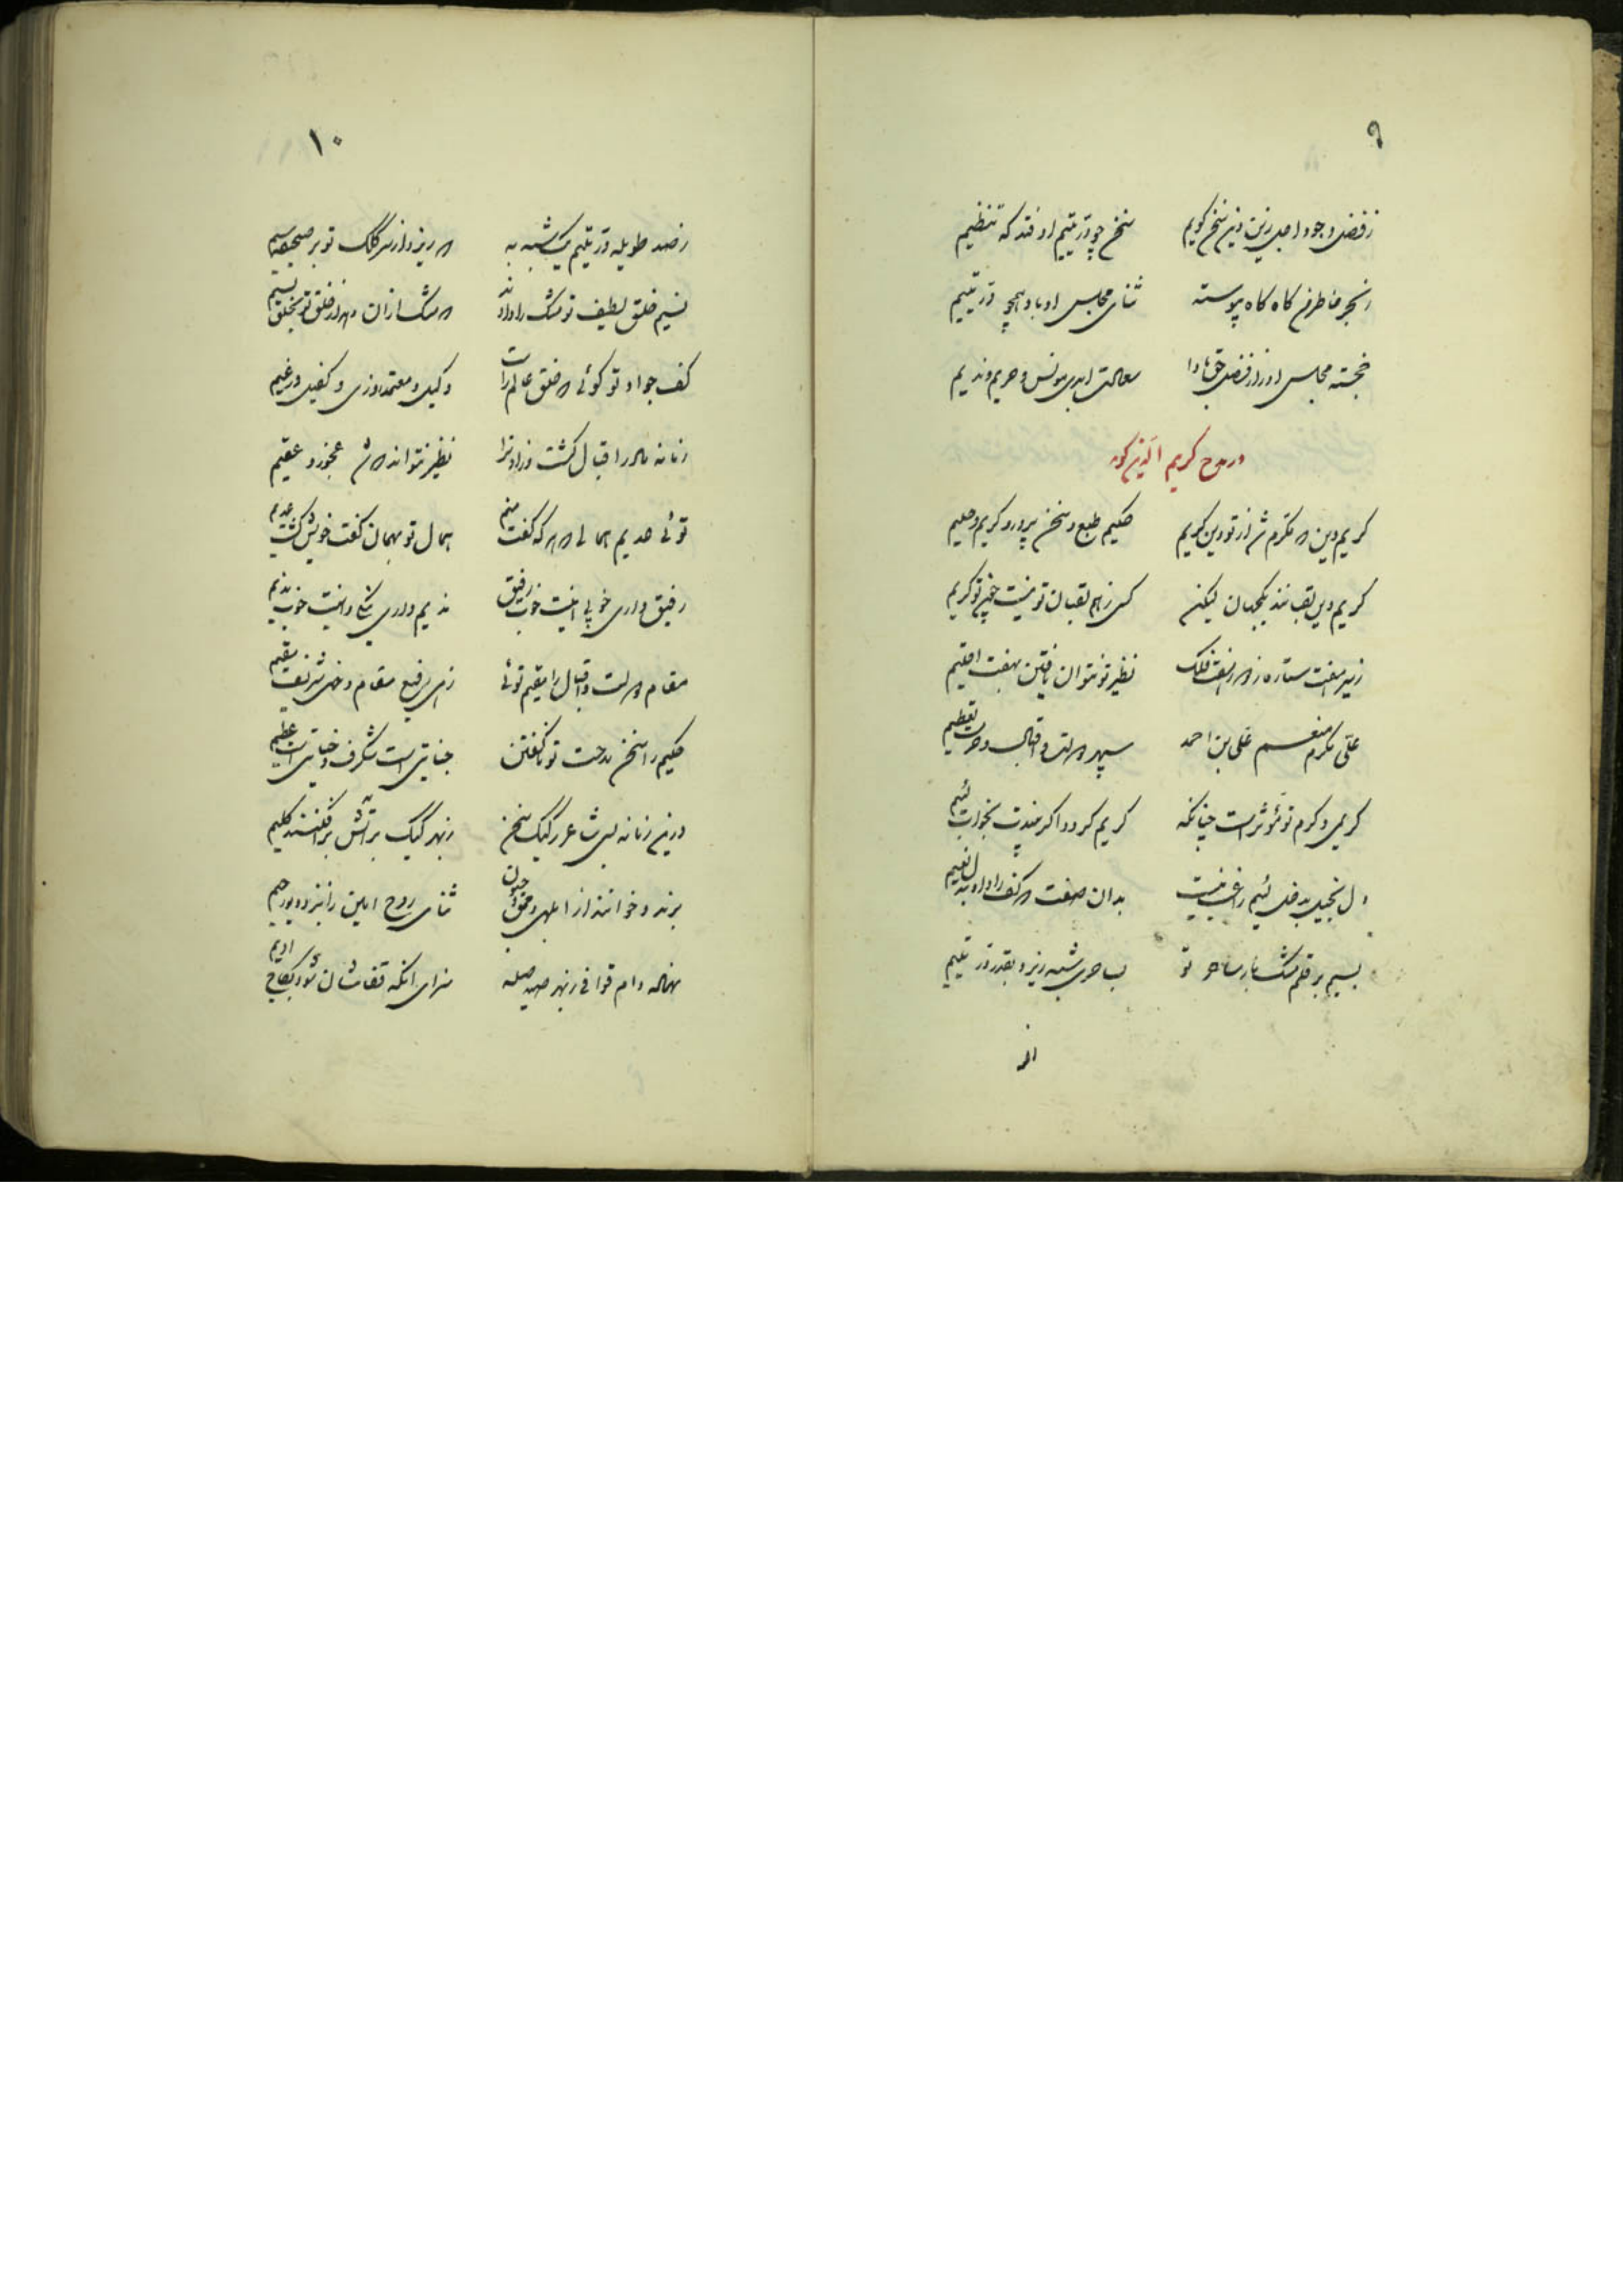 ۹
ز فضل وجود اجل زین دین سخن گویم سخن چو در یتیم اوفتد که تنظیم
ز بحر خاطر من گاه گاه پیوسته ثنای مجلس او باد همچو در یتیم
خجسته مجلس او را ز فضل حق بادا سعادت ابدی مونس و حریم و ندیم
در مدح کریم الدین گوید
کریم دین که مکرم شد از تو دین کریم حکیم طبع و سخن پرور و کریم و حلیم
کریم دین لقبانند در جهان لیکن کسی ز هم لقبان تو نیست چون تو کریم
ز سیر هفت ستاره ز دور هفت فلک نظیر تو نتوان یافتن بهفت اقلیم
علی مکرم منعم علی بن احمد سپهر دولت و اقبال و حرمت و تعظیم
کریمی و کرم تو مؤثر است چنانکه کریم گردد اگر بیندت بخواب لئیم
دل بخیل بدخل لئیم راغب نیست بدان صفت که کف راد تو ببذل نعیم
بسیم بر قلم مشکبار ساحر تو بساحری شبه ریزد بقدر در یتیم
از
۱۰
ز صد طویله در یتیم یک شبه به که ریزد از سر کلک تو بر صحیفه سیم
نسیم خلق لطیف تو مشک را دادند که مشک از آن دهد از خلق تو بخلق نسیم
کف جواد تو گوئی که خلق عالم راست وکیل و معتمد روزی و کفیل و زعیم
زمانه مادر اقبال گشت و زاد ترا نظیر نتواند که شد عجوز و عقیم
توئی عدیم همالی که هر که گفت منم همال تو بهمان گفت خویش گشت عدیم
رفیق داری خوبی اینت خوب رفیق ندیم داری نیکی و اینت خوب ندیم
مقام دولت و اقبال را مقیم توئی زهی رفیع مقام و خهی شریف مقیم
حکیم را سخن مدحت تو ناگفتن جنایتی است شگرف و خیانتی است عظیم
درین زمانه بسی شاعر رکیک سخن ز بهر کیک بر آتش برافکنند گلیم
برند و خوانند از ابلهی و حمق و جنون ثنای روح امین را بنزد دیو رجیم
نهاله دام قوافی ز بهر صید صله سزای آنکه قفاشان شود بکاج ادیم